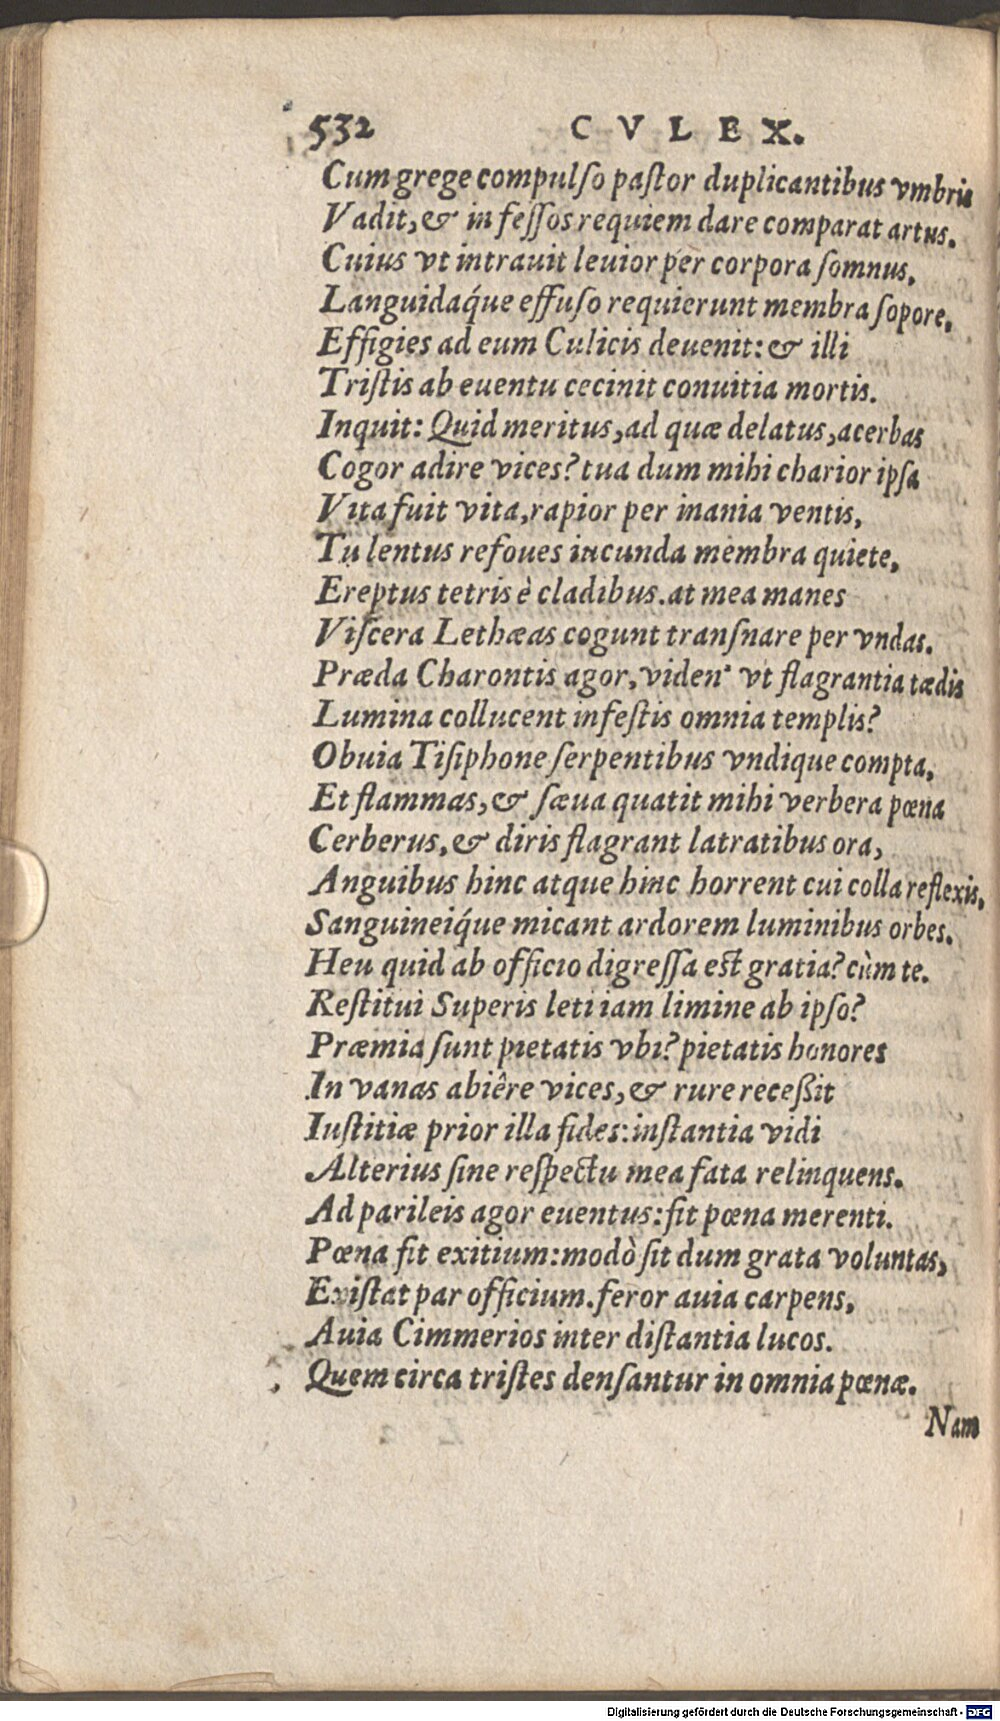 532 CVLEX.
Cum grege compulſo paſtor duplicantibus vmbris
Vadit, & in feſſos requiem dare comparat artus.
Cuius vt intrauit leuior per corpora ſomnus,
Languidaq́ue effuſo requierunt membra ſopore,
Effigies ad eum Culicis deuenit: & illi
Triſtis ab euentu cecinit conuitia mortis.
Inquit: Quid meritus, ad quæ delatus, acerbas
Cogor adire vices? tua dum mihi charior ipſa
Vita fuit vita, rapior per inania ventis,
Tu lentus refoues iucunda membra quiete,
Ereptus tetris è cladibus. at mea manes
Viſcera Lethæas cogunt tranſnare per vndas.
Præda Charontis agor, viden' vt flagrantia tædis
Lumina collucent infeſtis omnia templis?
Obuia Tiſiphone ſerpentibus vndique compta,
Et flammas, & ſæua quatit mihi verbera pœna
Cerberus, & diris flagrant latratibus ora,
Anguibus hinc atque hinc horrent cui colla reflexis,
Sanguineiq́ue micant ardorem luminibus orbes.
Heu quid ab officio digreſſa eſt gratia? cùm te.
Reſtitui Superis leti iam limine ab ipſo?
Præmia ſunt pietatis vbi? pietatis honores
In vanas abiêre vices, & rure receßit
Iuſtitiæ prior illa fides: inſtantia vidi
Alterius ſine reſpectu mea fata relinquens.
Ad parileis agor euentus: fit pœna merenti.
Pœna fit exitium: modò ſit dum grata voluntas,
Exiſtat par officium. feror auia carpens,
Auia Cimmerios inter diſtantia lucos.
Quem circa triſtes denſantur in omnia pœnæ.
Nam
Digitalisierung gefördert durch die Deutsche Forschungsgemeinschaft - DFG